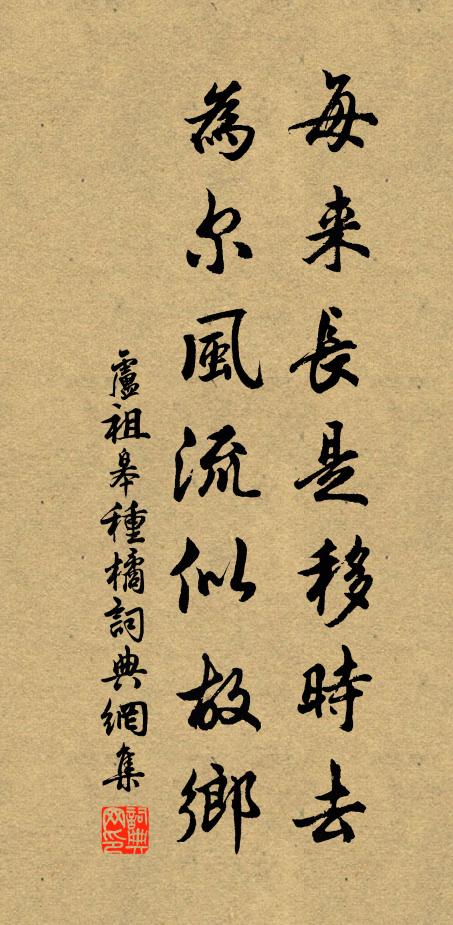 每来長是移時去
為尔風流似故鄉
盧祖皋種橘詞典網集
詞典网印